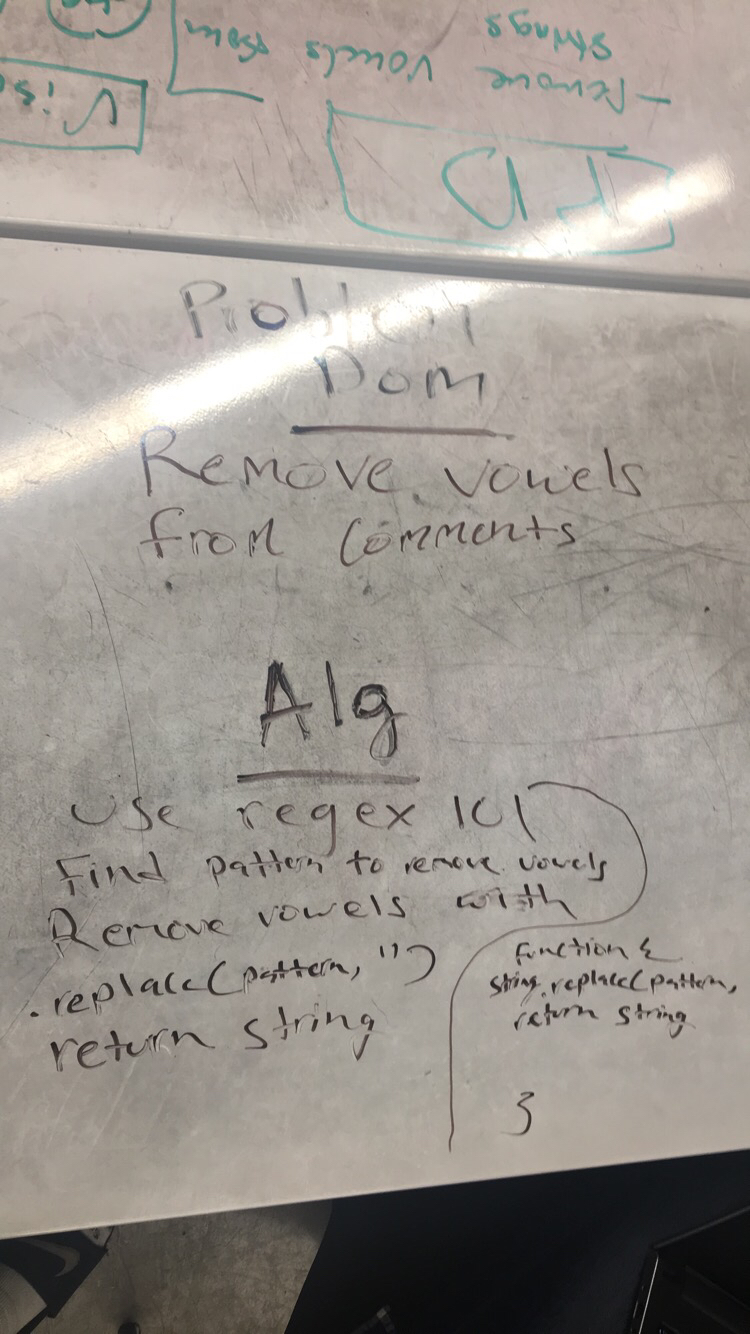 - remove vowels from
strings
PD
Problem
Dom
Remove vowels
from comments
Alg
Use regex 101
Find pattern to remove vowels
Remove vowels with
.replace(pattern, '')
return string
function {
string.replace(pattern,
return string
}